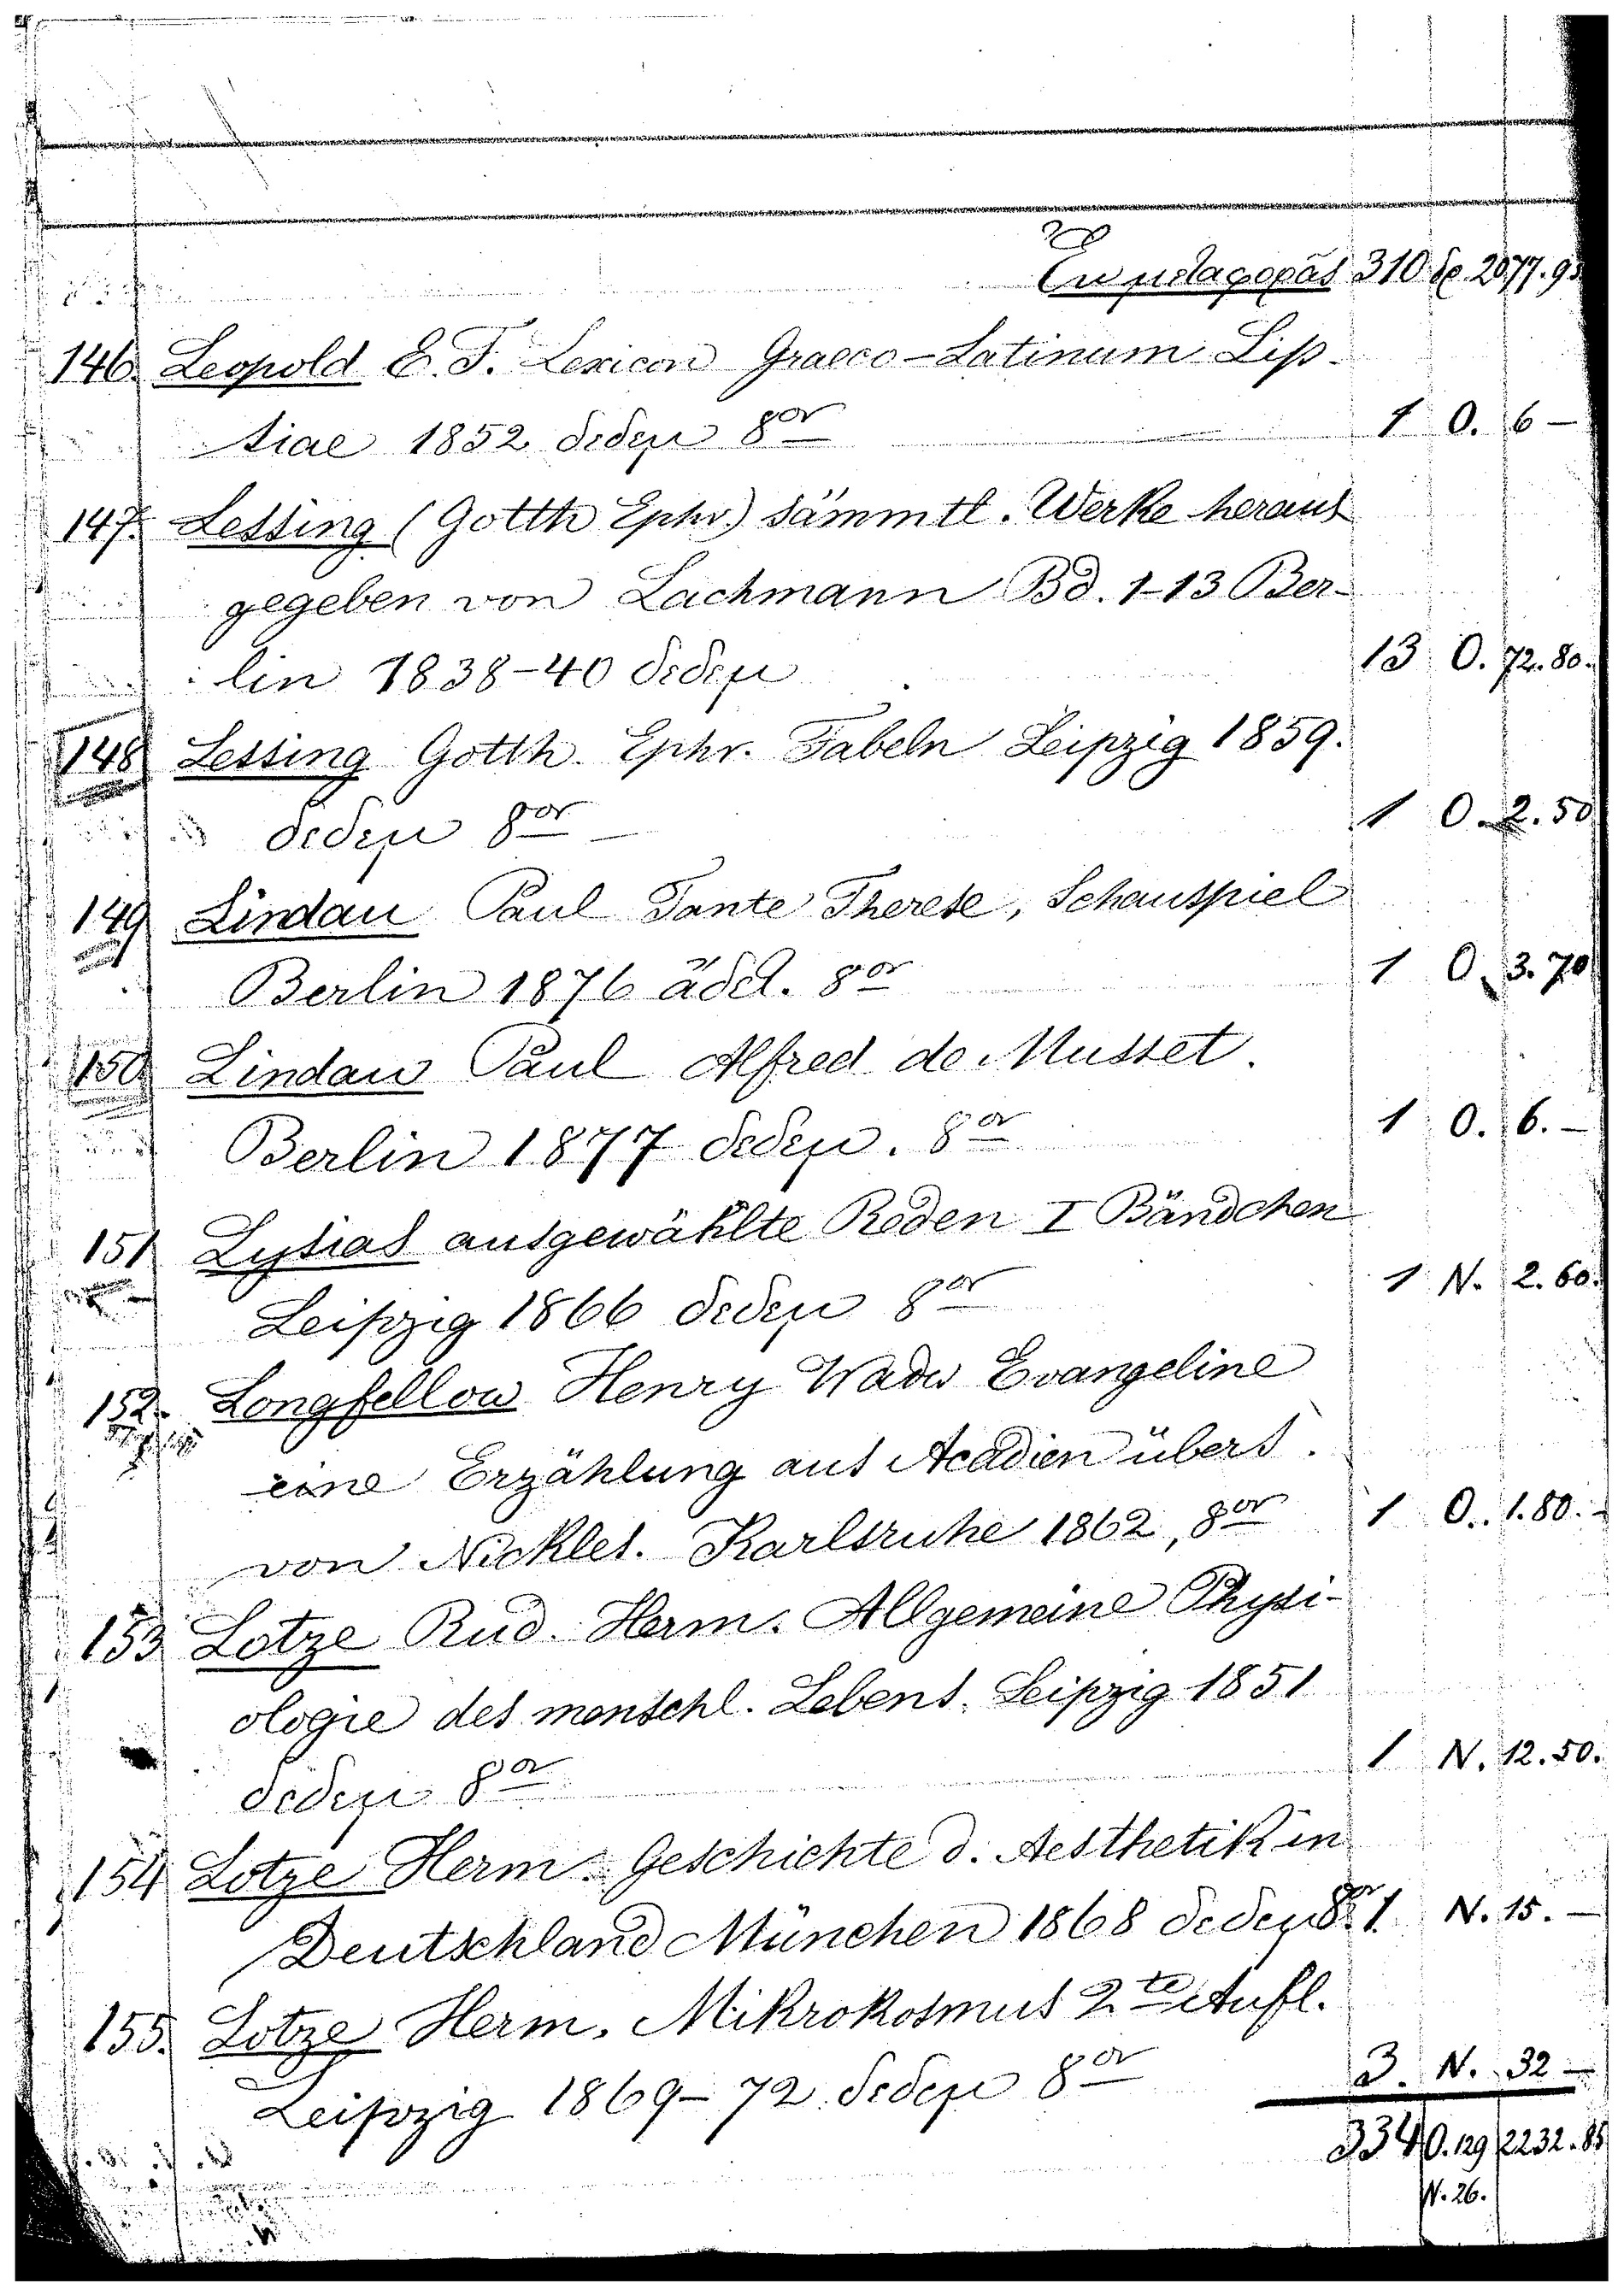 Ἐκ μεταφορᾶς 310 δρ. 2077.95
146. Leopold E. F. Lexicon Graeco-Latinum Lip-
siae 1852 δεδεμ 8ον 1 O. 6 —
147. Lessing (Gotth Ephr.) sämmtl. Werke heraus
gegeben von Lachmann Bd. 1-13 Ber-
lin 1838-40 δεδεμ 13 O. 72.80.
148 Lessing Gotth. Ephr. Fabeln Leipzig 1859.
δεδεμ 8ον — 1 O. 2.50
149 Lindau Paul Tante Therese, Schauspiel
Berlin 1876 ἄδετ. 8ον 1 O. 3.70
150 Lindau Paul Alfred de Musset.
Berlin 1877 δεδεμ. 8ον 1 O. 6. —
151 Lysias ausgewählte Reden I Bändchen
Leipzig 1866 δεδεμ 8ον 1 N. 2.60.
152. Longfellow Henry Wadw Evangeline
eine Erzählung aus Acadien übers.
von Nickles. Karlsruhe 1862, 8ον 1 O. 1.80. -
153 Lotze Rud. Herm. Allgemeine Physi-
ologie des menschl. Lebens. Leipzig 1851
δεδεμ 8ον 1 N. 12.50.
154 Lotze Herm. Geschichte d. Aesthetik in
Deutschland München 1868 δεδεμ 8ον 1. N. 15. —
155. Lotze Herm. Mikrokosmus 2te Aufl.
Leipzig 1869-72 δεδεμ 8ον 3. N. 32 —
334 O. 129 2232.85
N. 26.